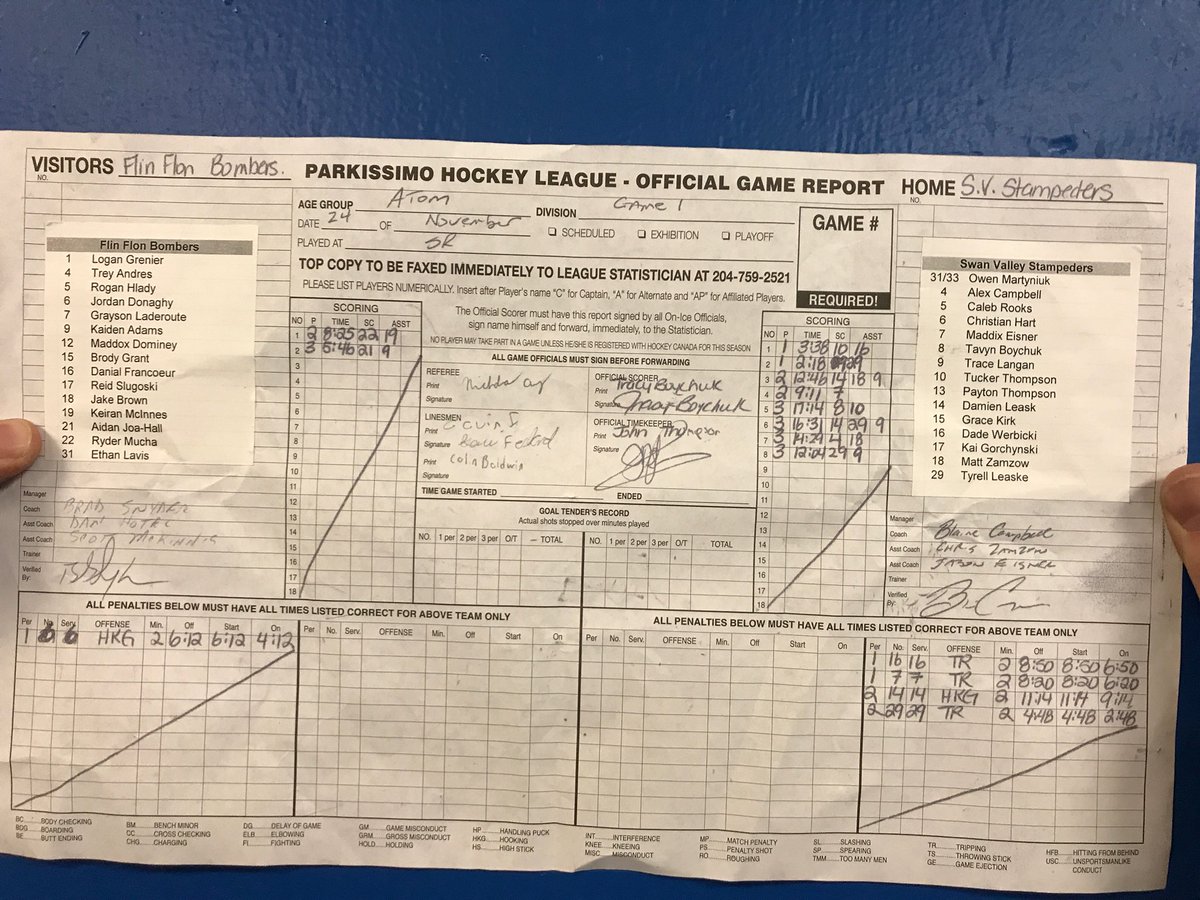 VISITORS Flin Flon Bombers.
NO.
PARKISSIMO HOCKEY LEAGUE - OFFICIAL GAME REPORT
HOME S.V. Stampeders
NO.
AGE GROUP Atom
DIVISION Game 1
DATE 24 OF November
☐ SCHEDULED ☐ EXHIBITION ☐ PLAYOFF
PLAYED AT SR
GAME #
REQUIRED!
TOP COPY TO BE FAXED IMMEDIATELY TO LEAGUE STATISTICIAN AT 204-759-2521
PLEASE LIST PLAYERS NUMERICALLY. Insert after Player's name "C" for Captain, "A" for Alternate and "AP" for Affiliated Players.
Flin Flon Bombers
1 Logan Grenier
4 Trey Andres
5 Rogan Hlady
6 Jordan Donaghy
7 Grayson Laderoute
9 Kaiden Adams
12 Maddox Dominey
15 Brody Grant
16 Danial Francoeur
17 Reid Slugoski
18 Jake Brown
19 Keiran McInnes
21 Aidan Joa-Hall
22 Ryder Mucha
31 Ethan Lavis
Manager
Coach BRAD SNYDER
Asst Coach DAN
Asst Coach SCOTT
Trainer
Verified
By:
SCORING
NO P TIME SC ASST
1 2 8:25 22 19
2 3 5:46 21 9
3
4
5
6
7
8
9
10
11
12
13
14
15
16
17
18
The Official Scorer must have this report signed by all On-Ice Officials,
sign name himself and forward, immediately, to the Statistician.
NO PLAYER MAY TAKE PART IN A GAME UNLESS HE/SHE IS REGISTERED WITH HOCKEY CANADA FOR THIS SEASON
ALL GAME OFFICIALS MUST SIGN BEFORE FORWARDING
REFEREE
Print
Signature
OFFICIAL SCORER
Print Tracy Boychuk
Signature Tracy Boychuk
LINESMEN
Print
Signature
Print Colin Baldwin
Signature
OFFICIAL TIMEKEEPER
Print John Thompson
Signature
TIME GAME STARTED ENDED
GOAL TENDER'S RECORD
Actual shots stopped over minutes played
NO. 1 per 2 per 3 per O/T TOTAL
NO. 1 per 2 per 3 per O/T TOTAL
SCORING
NO P TIME SC ASST
1 1 3:38 10 16
2 1 2:18 29
3 2 12:46 14 18 9
4 2 9:11 7
5 3 17:14 8 10
6 3 16:31 14 29 9
7 3 14:29 4 18
8 3 12:04 29 9
9
10
11
12
13
14
15
16
17
18
Swan Valley Stampeders
31/33 Owen Martyniuk
4 Alex Campbell
5 Caleb Rooks
6 Christian Hart
7 Maddix Eisner
8 Tavyn Boychuk
9 Trace Langan
10 Tucker Thompson
13 Payton Thompson
14 Damien Leask
15 Grace Kirk
16 Dade Werbicki
17 Kai Gorchynski
18 Matt Zamzow
29 Tyrell Leaske
Manager
Coach Blaine Campbell
Asst Coach CHRIS ZAMZOW
Asst Coach JASON EISNER
Trainer
Verified
By:
ALL PENALTIES BELOW MUST HAVE ALL TIMES LISTED CORRECT FOR ABOVE TEAM ONLY
Per No. Serv. OFFENSE Min. Off Start On
1 6 6 HKG 2 6:12 6:12 4:12
Per No. Serv. OFFENSE Min. Off Start On
ALL PENALTIES BELOW MUST HAVE ALL TIMES LISTED CORRECT FOR ABOVE TEAM ONLY
Per No. Serv. OFFENSE Min. Off Start On
Per No. Serv. OFFENSE Min. Off Start On
1 16 16 TR 2 8:50 8:50 6:50
1 7 7 TR 2 8:20 8:20 6:20
2 14 14 HKG 2 11:14 11:14 9:14
2 29 29 TR 2 4:48 4:48 2:48
BC......BODY CHECKING
BDG......BOARDING
BE......BUTT ENDING
BM......BENCH MINOR
CC......CROSS CHECKING
CHG......CHARGING
DG......DELAY OF GAME
ELB......ELBOWING
FI......FIGHTING
GM......GAME MISCONDUCT
GRM......GROSS MISCONDUCT
HOLD......HOLDING
HP......HANDLING PUCK
HKG......HOOKING
HS......HIGH STICK
INT......INTERFERENCE
KNEE......KNEEING
MISC......MISCONDUCT
MP......MATCH PENALTY
PS......PENALTY SHOT
RO......ROUGHING
SL......SLASHING
SP......SPEARING
TMM......TOO MANY MEN
TR......TRIPPING
TS......THROWING STICK
GE......GAME EJECTION
HFB......HITTING FROM BEHIND
USC......UNSPORTSMANLIKE
CONDUCT